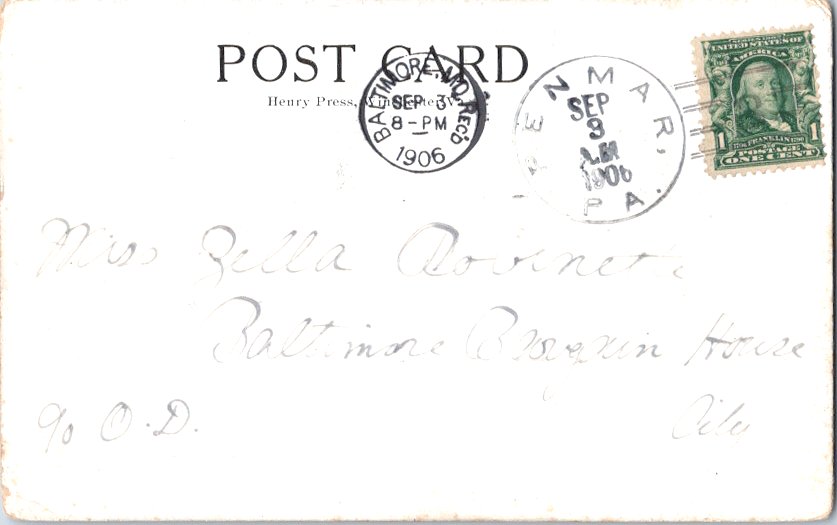 POST CARD
Henry Press, Winchester, Va.
BALTIMORE, MD. REC'D
SEP 3
8-PM
1906
PEN MAR,
SEP
3
AM
1906
PA.
UNITED STATES OF
AMERICA
1 FRANKLIN 1790 1
POSTAGE
ONE CENT
Miss Zella Robinette
Baltimore House
c/o O.D. City